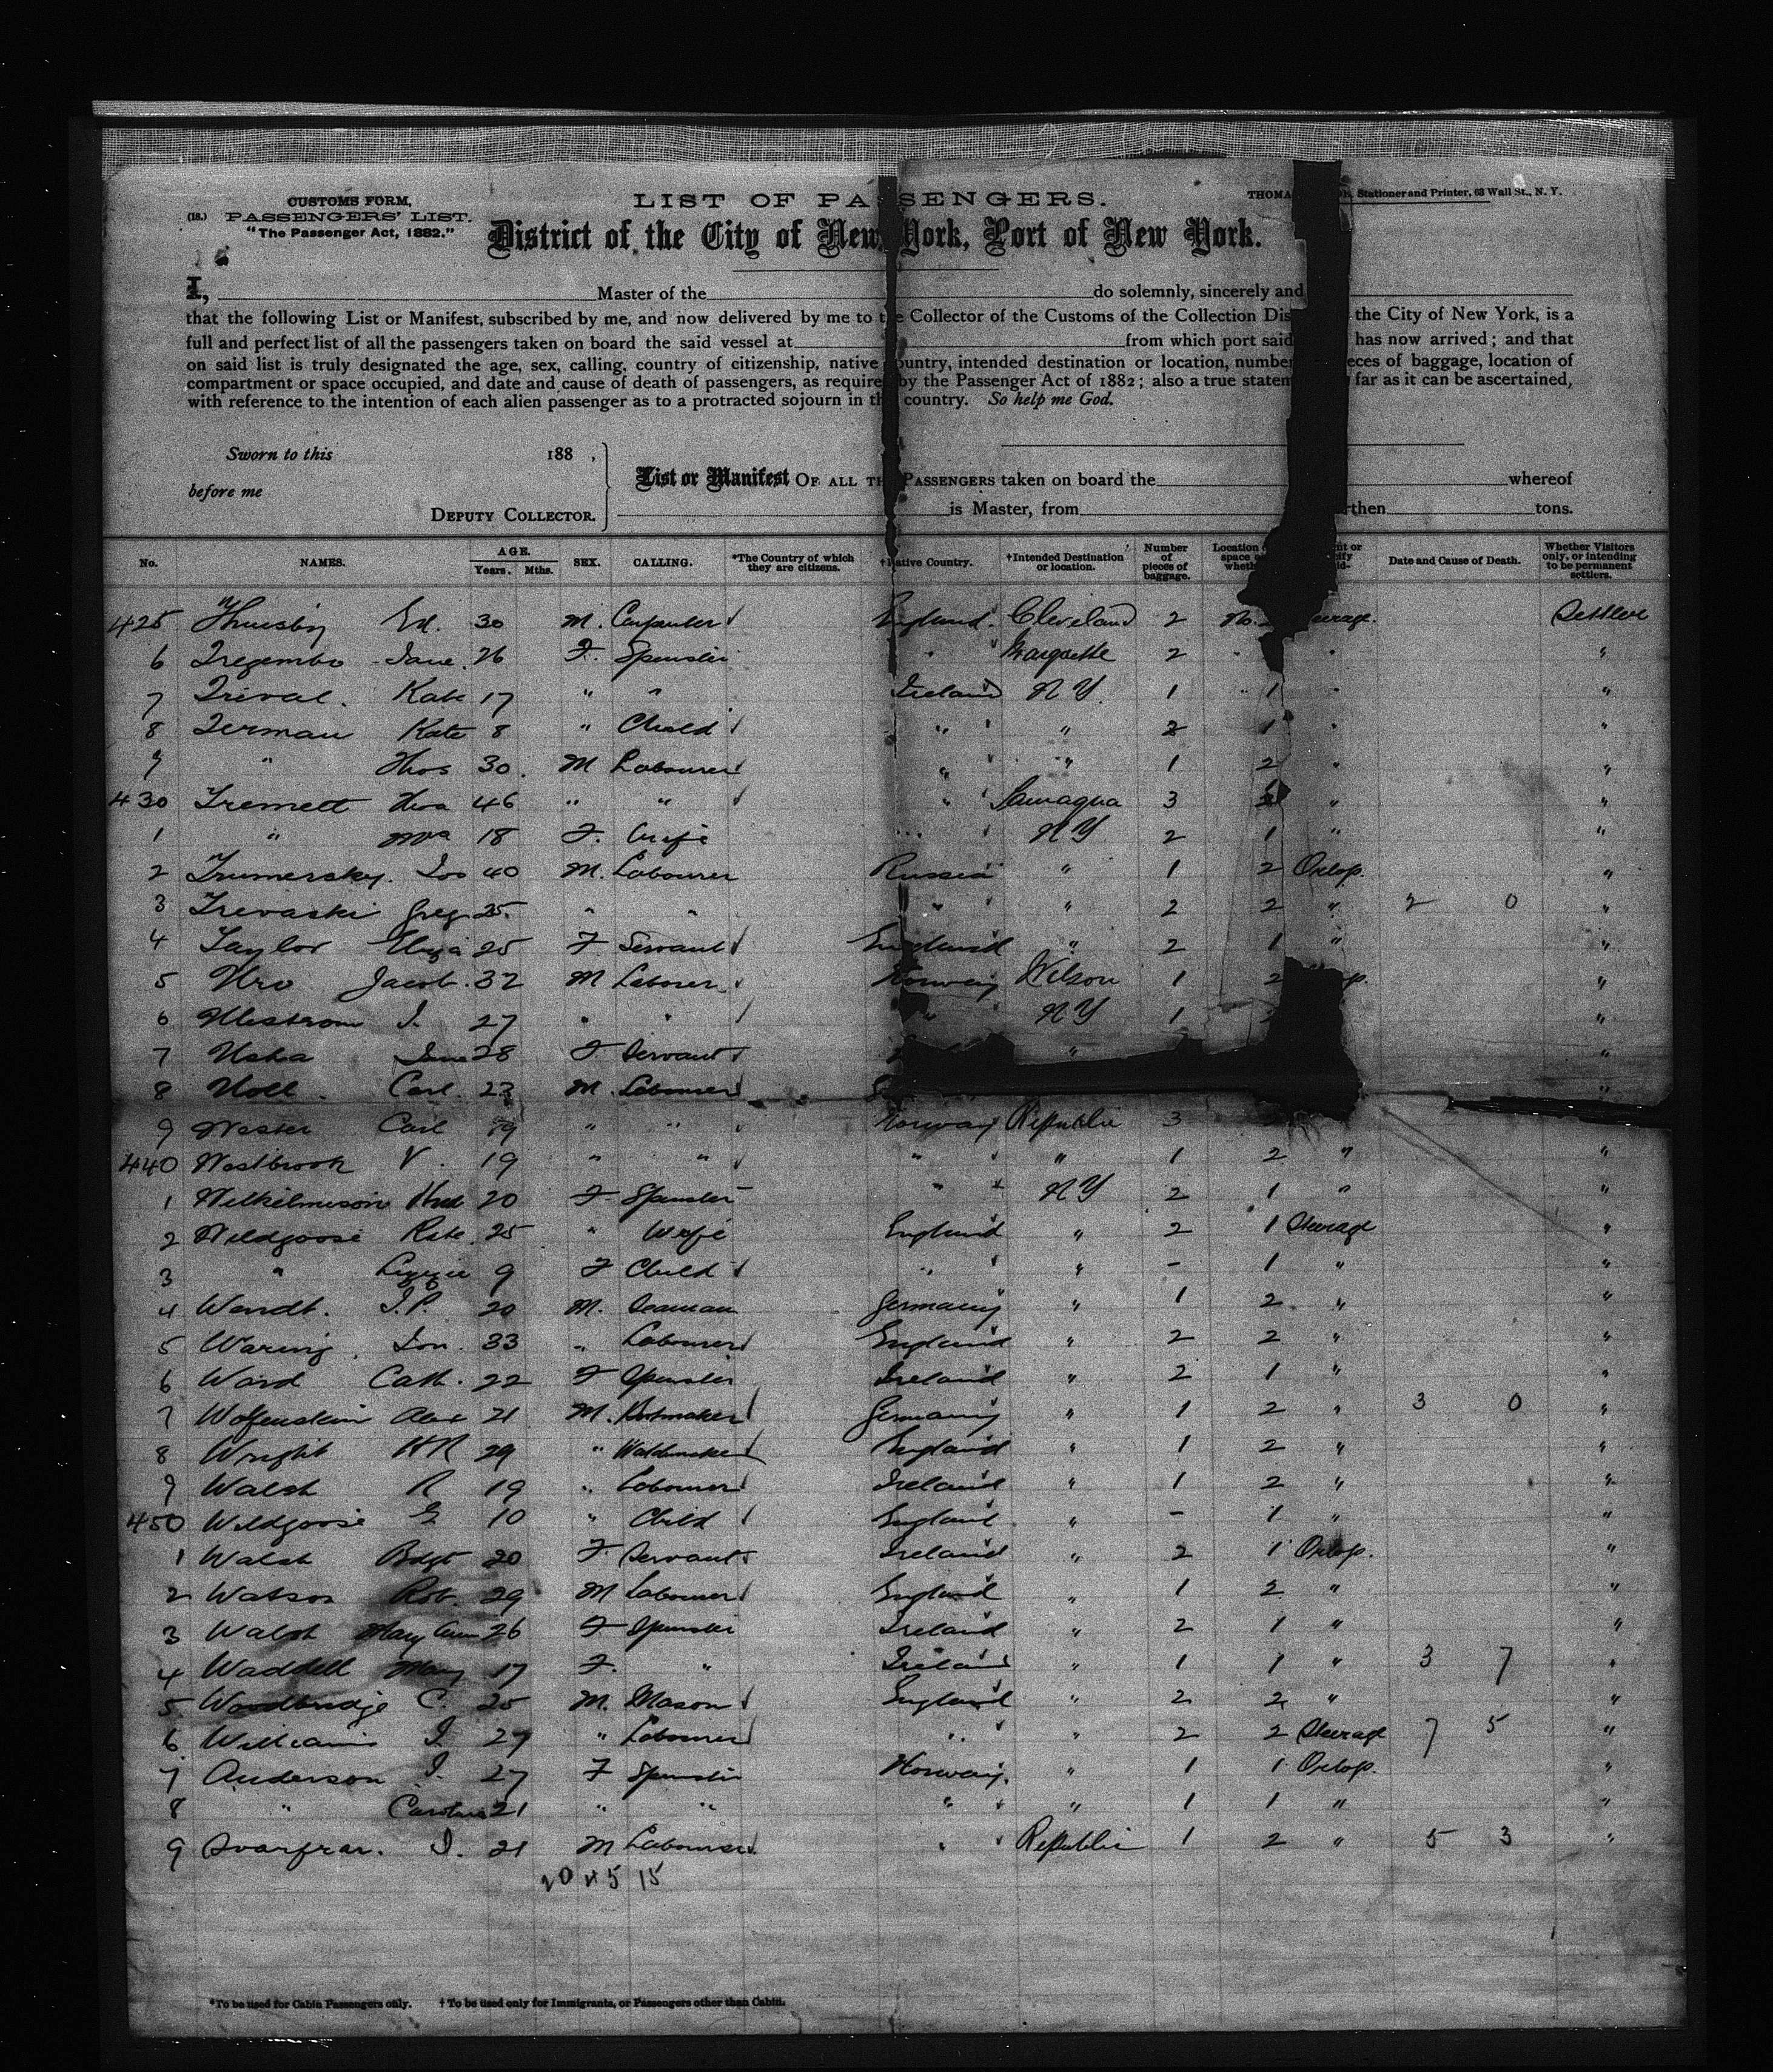 CUSTOMS FORM,
(18.) PASSENGERS' LIST.
"The Passenger Act, 1882."
LIST OF PASSENGERS.
Stationer and Printer, 63 Wall St., N. Y.
District of the City of New York, Port of New York.
I, Master of the do solemnly, sincerely and
that the following List or Manifest, subscribed by me, and now delivered by me to the Collector of the Customs of the Collection Dis the City of New York, is a
full and perfect list of all the passengers taken on board the said vessel at from which port said has now arrived; and that
on said list is truly designated the age, sex, calling, country of citizenship, native country, intended destination or location, number eces of baggage, location of
compartment or space occupied, and date and cause of death of passengers, as required by the Passenger Act of 1882; also a true statem far as it can be ascertained,
with reference to the intention of each alien passenger as to a protracted sojourn in this country. So help me God.
Sworn to this 188 ,
before me
DEPUTY COLLECTOR.
List or Manifest OF ALL THE PASSENGERS taken on board the whereof
is Master, from burthen tons.
No. NAMES. AGE. Years. Mths. SEX. CALLING. *The Country of which they are citizens. †Native Country. †Intended Destination or location. Number of pieces of baggage. Location Date and Cause of Death. Whether Visitors only, or intending to be permanent settlers.
425 Ed. 30 M. Carpenter England. Cleveland 2 Settler
6 Tregembo Jane. 26 F. Spinster " Marquette 2 " "
7 Kate 17 " " Ireland NY. 1 " 1 " "
8 Kate 8 " Child " " " 2 1 " "
9 " Thos 30. M Labourer " " 1 2 " "
430 46 " " " 3 " "
1 " Mra 18 F. Wife " NY 2 1 " "
2 40 M. Labourer Russia " 1 2 Orlop. "
3 Trevaski Greg 25. " " " " 2 2 " 2 0 "
4 Taylor Eliza 25 F Servant England " 2 1 " "
5 Uro Jacob. 32 M Laborer Norway Wilson 1 2 "
6 I. 27 " " " NY 1 "
7 28 F Servant " "
8 Carl. 23 M. Labourer "
9 Wester Carl 19 " " Norway Republic 3
440 Westbrook V. 19 " " " " 1 2 " "
1 20 F Spinster " NY 2 1 " "
2 Wildgoose Kate. 25 " Wife England " 2 1 Steerage "
3 " Lizzie 9 F Child " " - 1 " "
4 Wendt. J.P. 20 M. Seaman Germany " 1 2 " "
5 Waring. 33 " Labourer England " 2 2 " "
6 Ward Cath. 22 F Spinster Ireland " 2 1 " "
7 Wolfenstein Alex 21 M. Germany " 1 2 " 3 0 "
8 Wright HR 29 " Watchmaker England " 1 2 " "
9 Walsh R 19 " Labourer Ireland " 1 2 " "
450 Wildgoose G 10 " Child England " - 1 " "
1 Walsh Bdgt 20 F. Servant Ireland " 2 1 Orlop. "
2 Watson Rob. 29 M Labourer England " 1 2 " "
3 Walsh Mary Ann 26 F Spinster Ireland " 2 1 " "
4 Waddell Mary 17 F. " Ireland " 1 1 " 3 7 "
5 Woodbridge C. 25 M. Mason England " 2 2 " "
6 Williams I. 27 " Labourer " " 2 2 Steerage 7 5 "
7 Anderson I. 27 F Spinster Norway. " 1 1 Orlop. "
8 " Carolina 21 " " " " 1 1 " "
9 I. 21 M Labourer " Republic 1 2 " 5 3 "
20 45 15
*To be used for Cabin Passengers only. †To be used only for Immigrants, or Passengers other than Cabin.